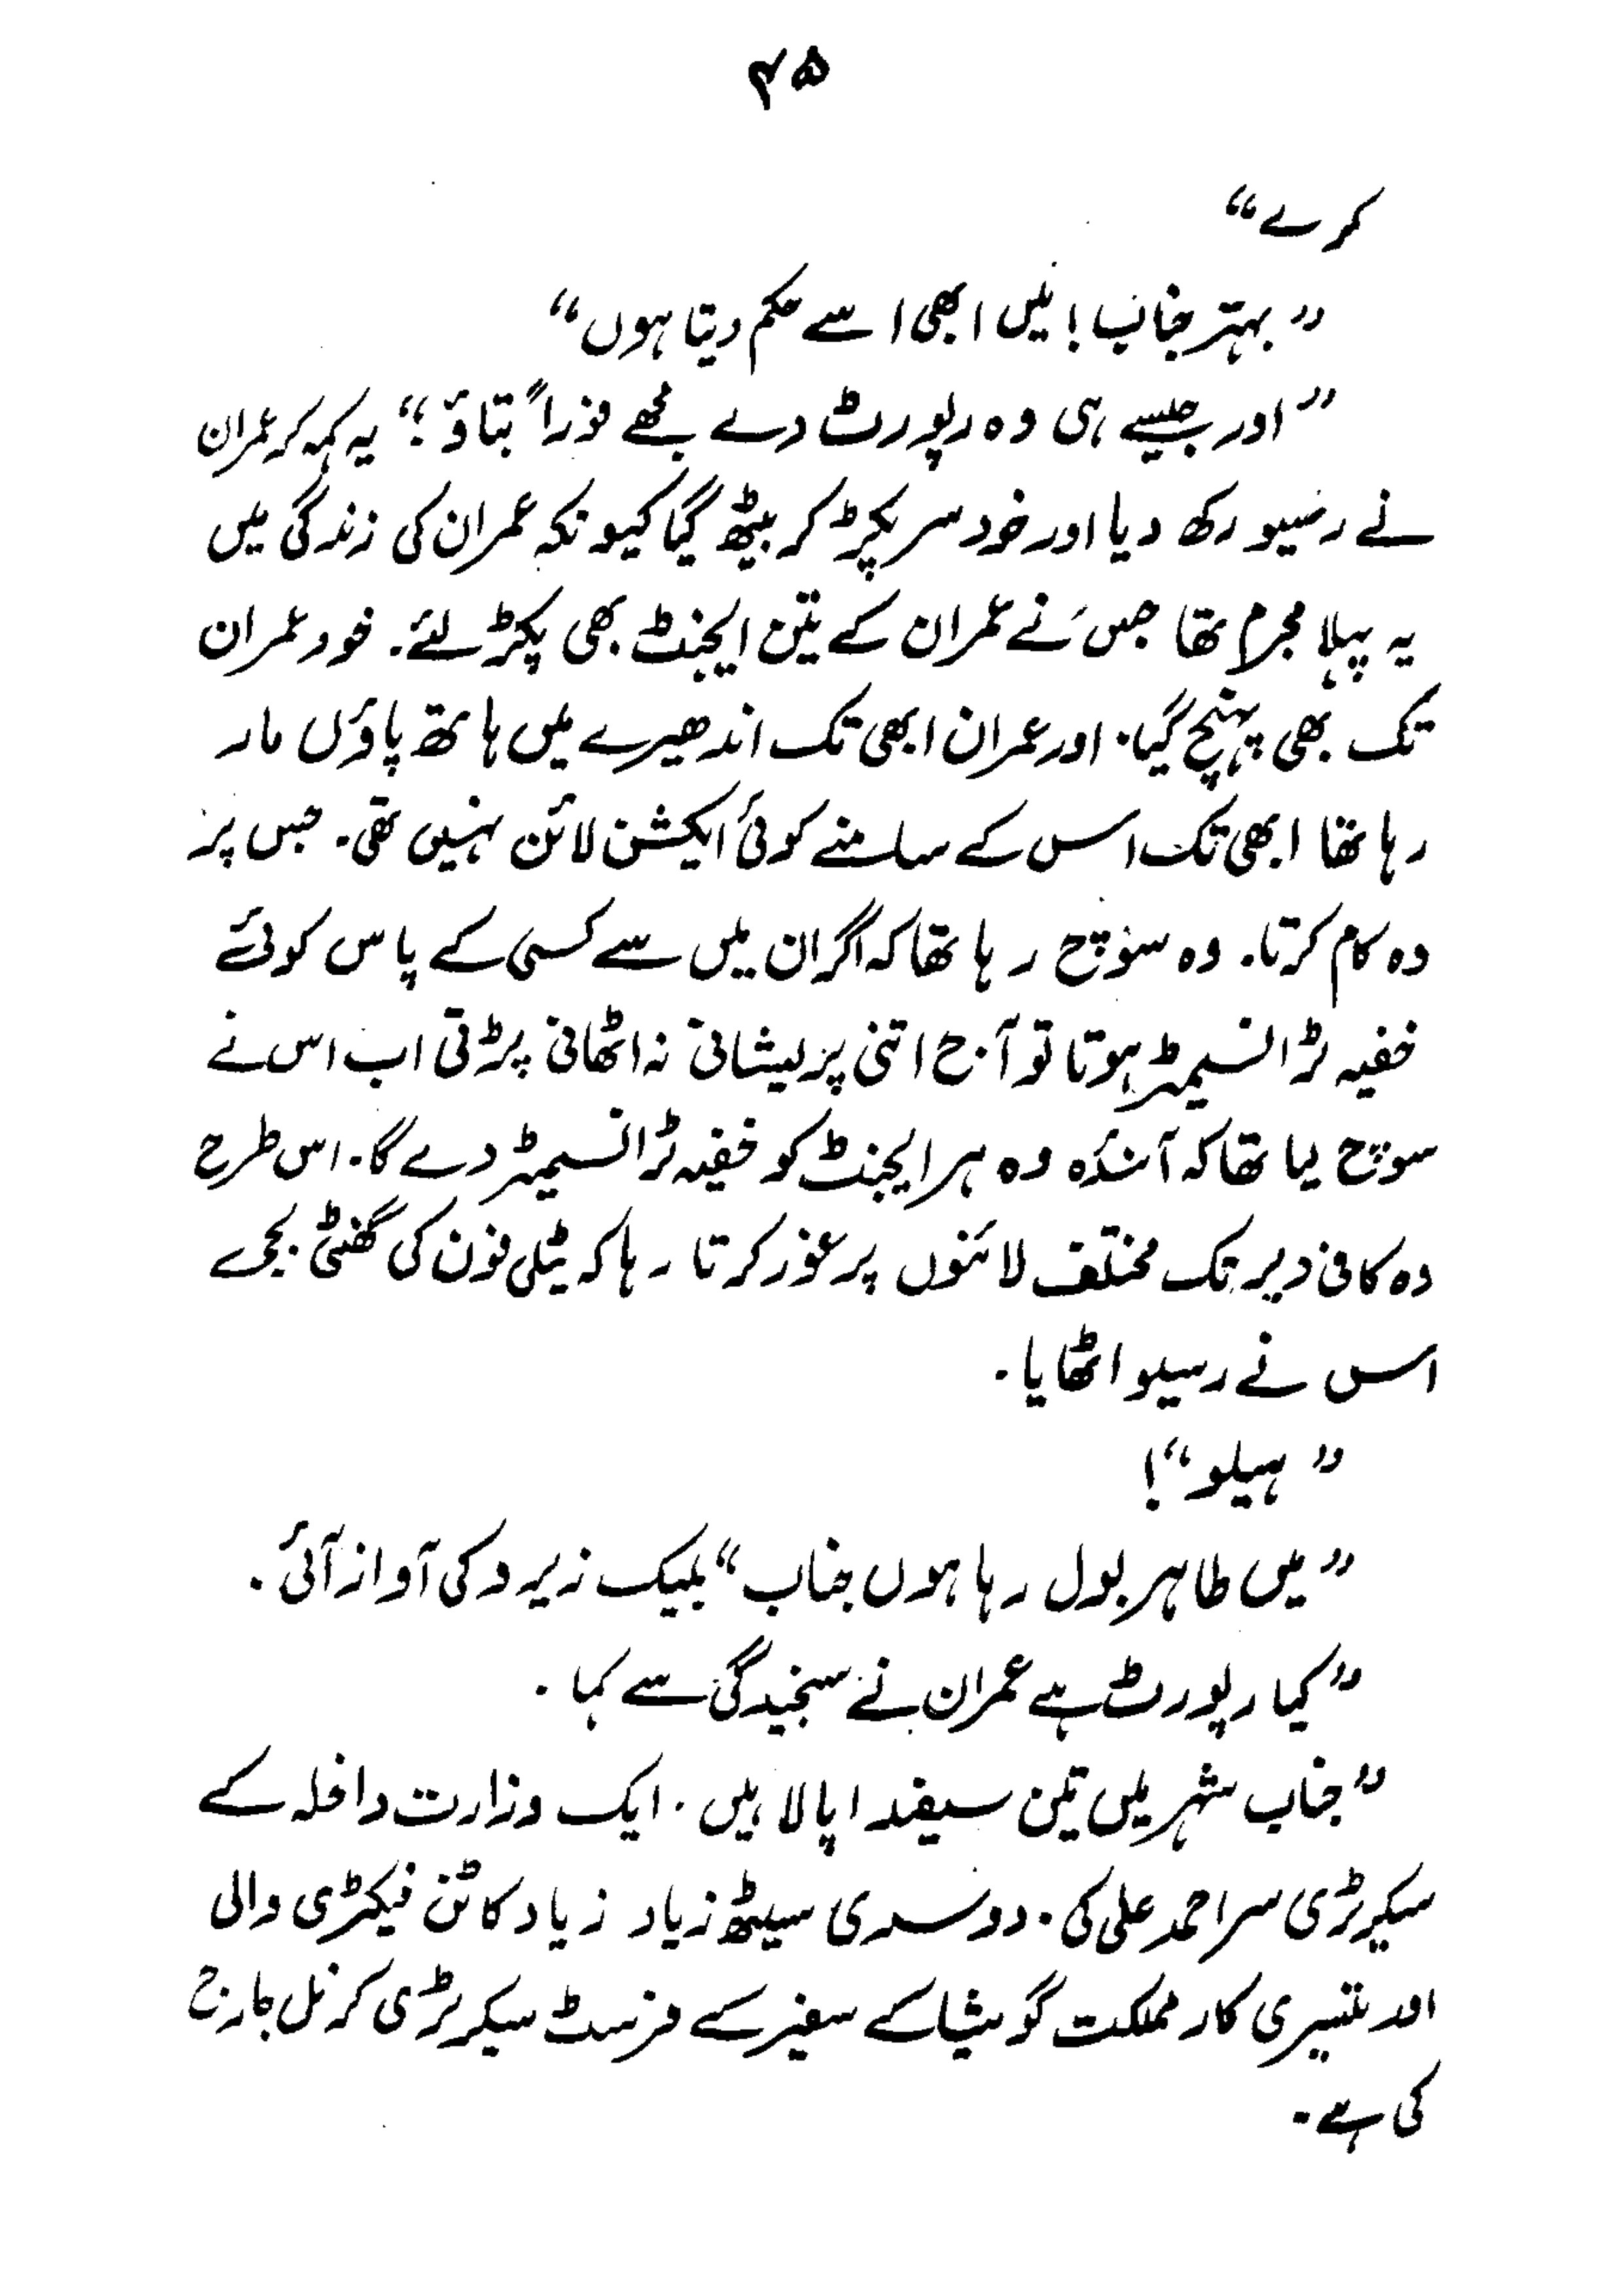 ۴۵
کرے“
”بہتر جناب! میں ابھی اسے حکم دیتا ہوں“
”اور جیسے ہی وہ رپورٹ دے مجھے فوراً بتاؤ؛“ یہ کہہ کر عمران
نے رسیور رکھ دیا اور خود سر پکڑ کر بیٹھ گیا کیونکہ عمران کی زندگی میں
یہ پہلا مجرم تھا جس نے عمران کے تین ایجنٹ بھی پکڑ لئے۔ خود عمران
تک بھی پہنچ گیا۔ اور عمران ابھی تک اندھیرے میں ہاتھ پاؤں مار
رہا تھا ابھی تک اس کے سامنے کوئی ایکشن لائن نہیں تھی۔ جس پر
وہ کام کرتا۔ وہ سوچ رہا تھا کہ اگر ان میں سے کسی کے پاس کوئے
خفیہ ٹرانسمیٹر ہوتا تو آج اتنی پریشانی نہ اٹھانی پڑتی اب اس نے
سوچ لیا تھا کہ آئندہ وہ ہر ایجنٹ کو خفیہ ٹرانسمیٹر دے گا۔ اس طرح
وہ کافی دیر تک مختلف لائنوں پر غور کرتا رہا کہ ٹیلی فون کی گھنٹی بجے
اس نے رسیو اٹھایا۔
”ہیلو“!
”میں طاہر بول رہا ہوں جناب“ بلیک زیرو کی آواز آئی۔
”کیا رپورٹ ہے عمران نے سنجیدگی سے کہا۔
”جناب شہر میں تین سیفد اپالا ہیں۔ ایک وزارت داخلہ کے
سیکرٹری سر احمد علی کی۔ دوسری سیٹھ زیاد زیاد کاٹن فیکٹری والی
اور تیسری کار مملکت گوشیا کے سفیر کے فرسٹ سیکرٹری کرنل جارج
کی ہے۔